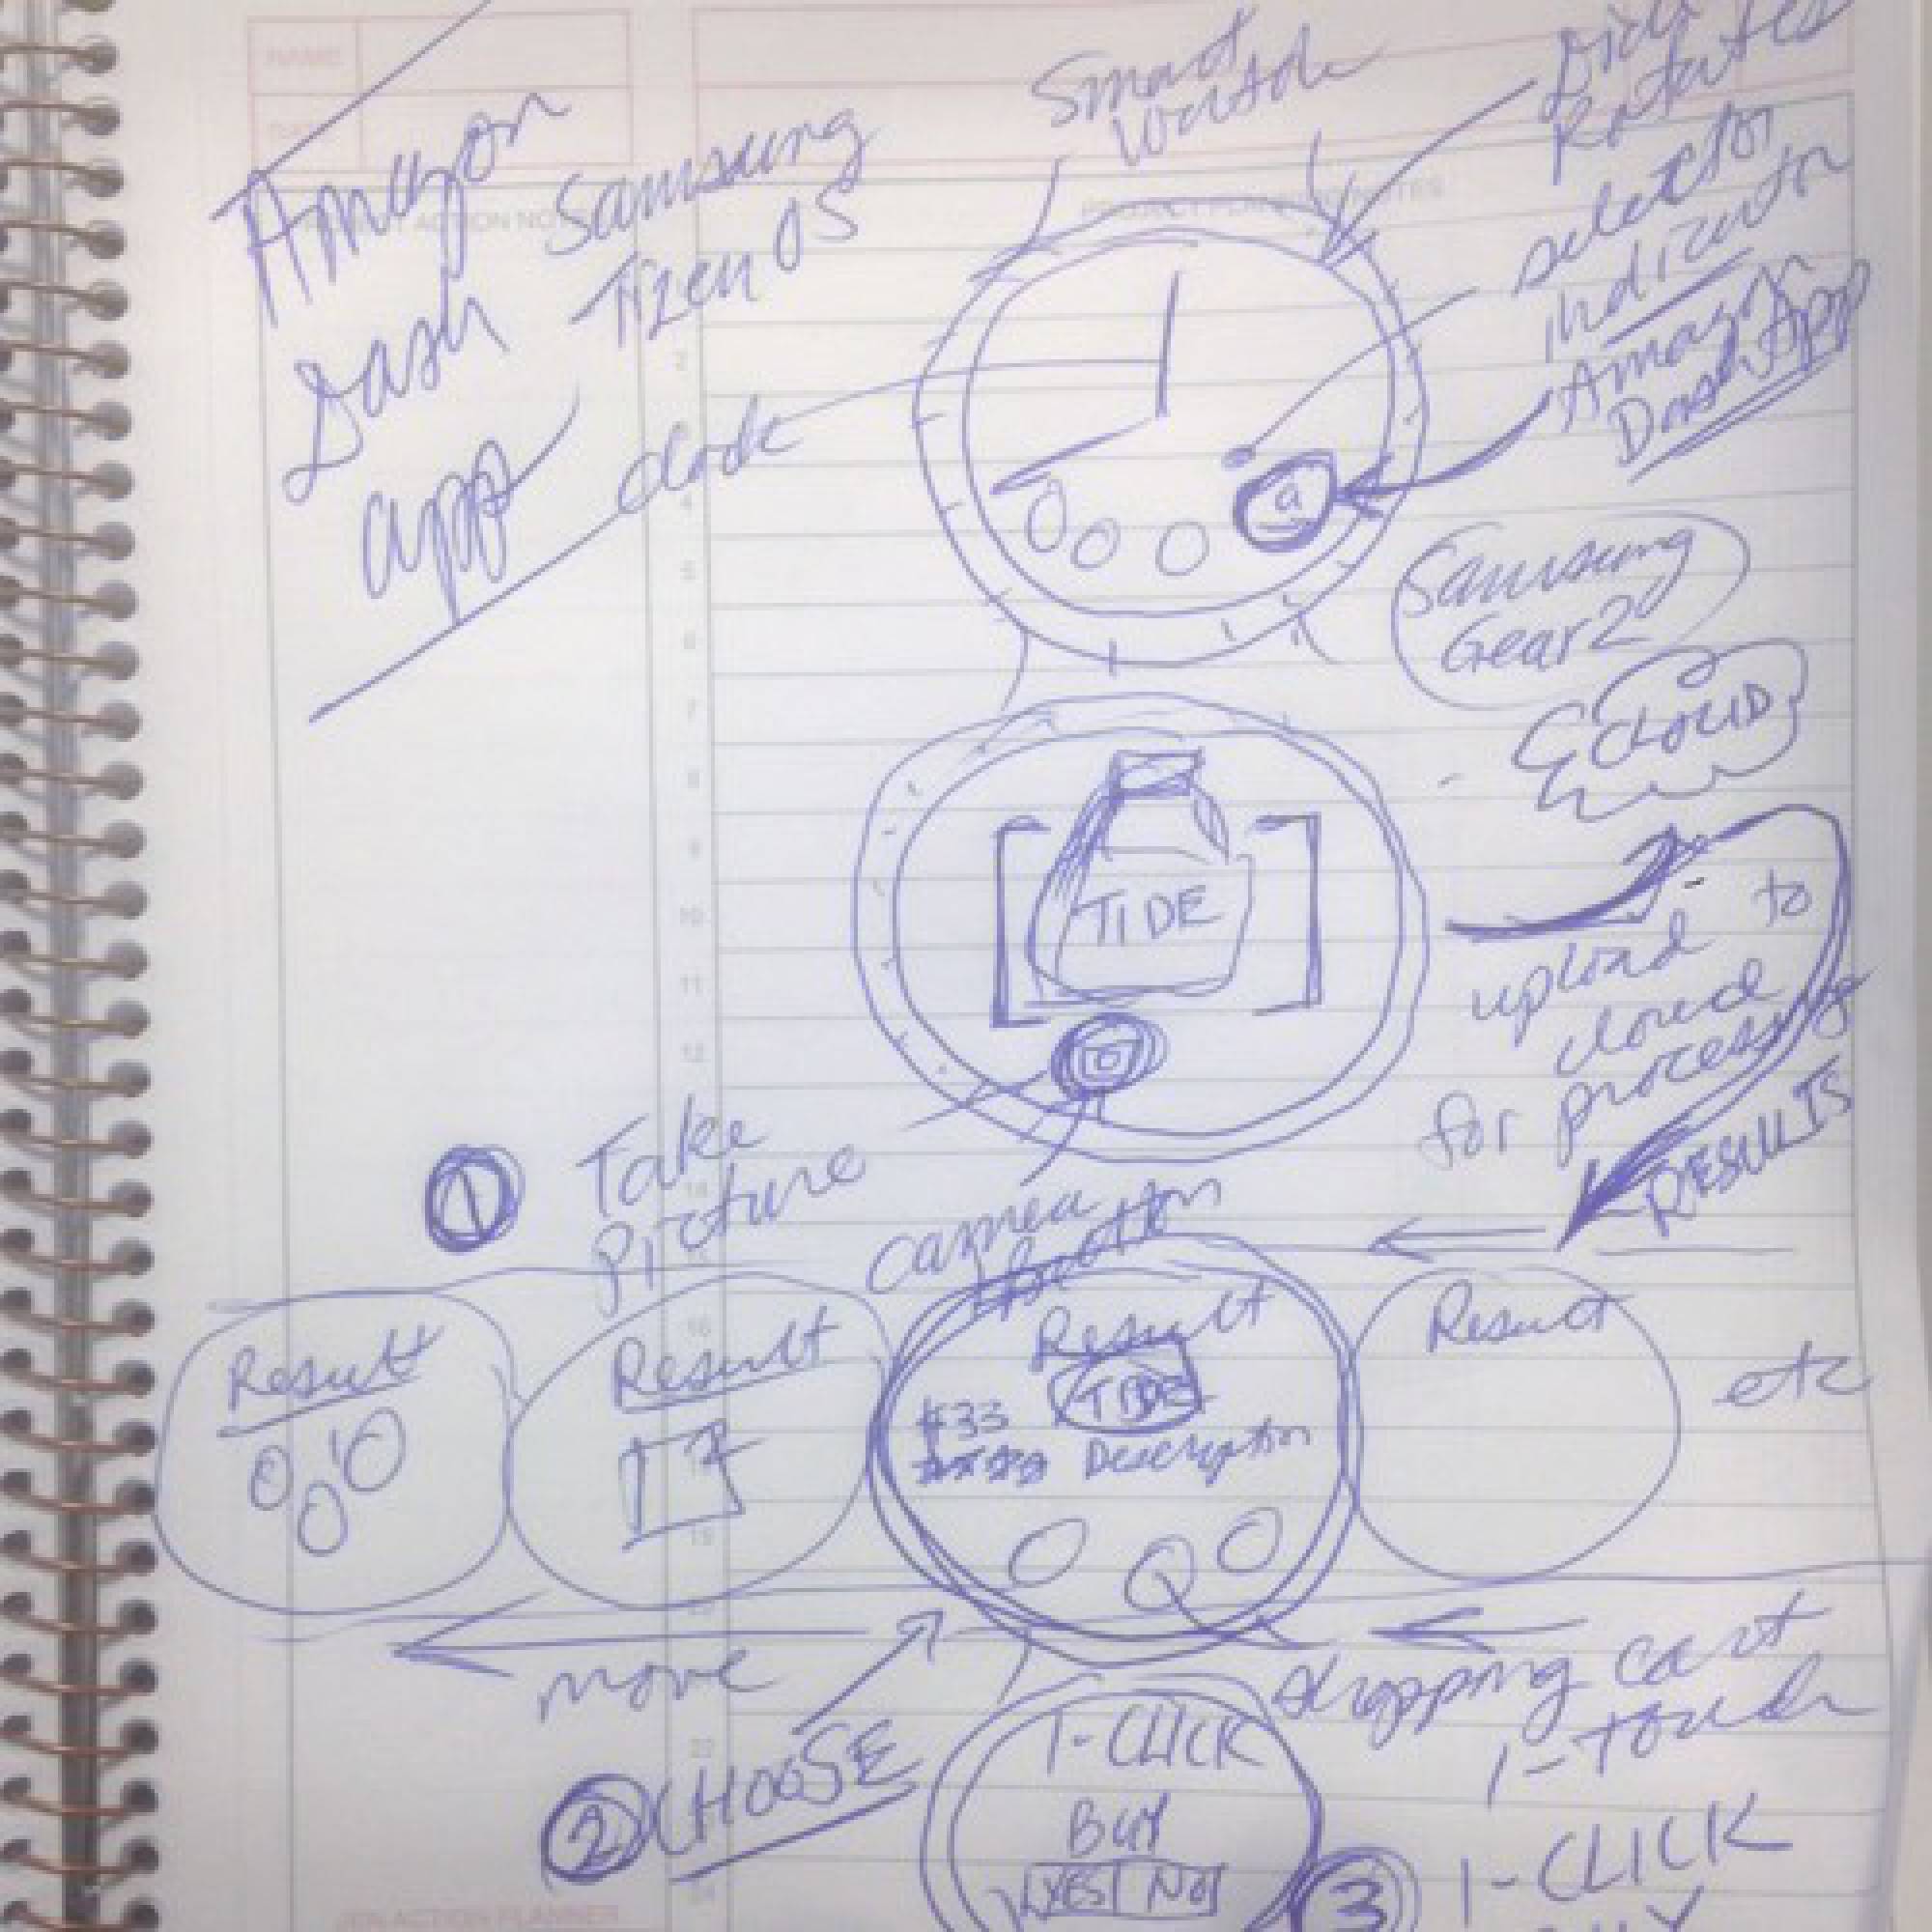 NAME
Smart
Watch
Rotates
selector
indicator
Amazon
Dash App
Amazon
Dash
app
Samsung
Tizen OS
PROJECT ACTION NOTES
PROJECT PLANNING NOTES
clock
a
Samsung
Gear 2
CLOUD
TIDE
upload to
cloud
for processing
RESULTS
1
Take
Picture
camera
button
2
3
4
5
6
7
8
9
10
11
12
14
16
19
Result
Result
Result
TIDE
$33
Description
Result
etc
move
shopping cart
1-touch
2 CHOOSE
1-CLICK
BUY
YES No
3 1-CLICK
BUY
ACTION PLANNER